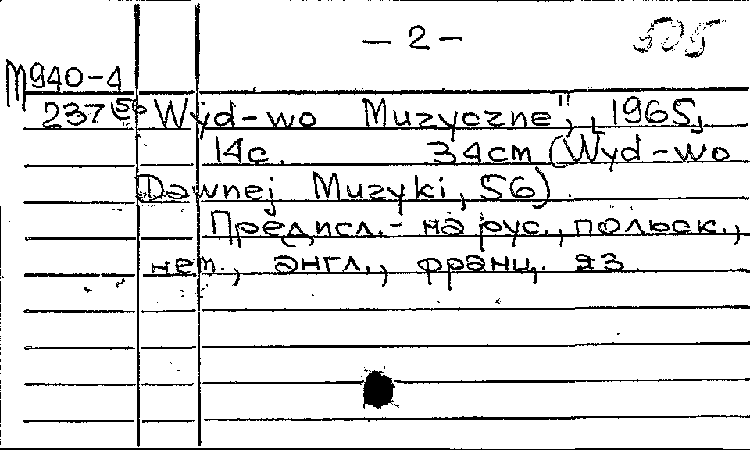 — 2 —
505
М940-4
237(56 Wyd-wo Muzyczne", [1965]
14с. 34cm (Wyd-wo
Dawnej Muzyki, 56)
Предисл. - на рус., польск.,
нем., англ., франц. яз.